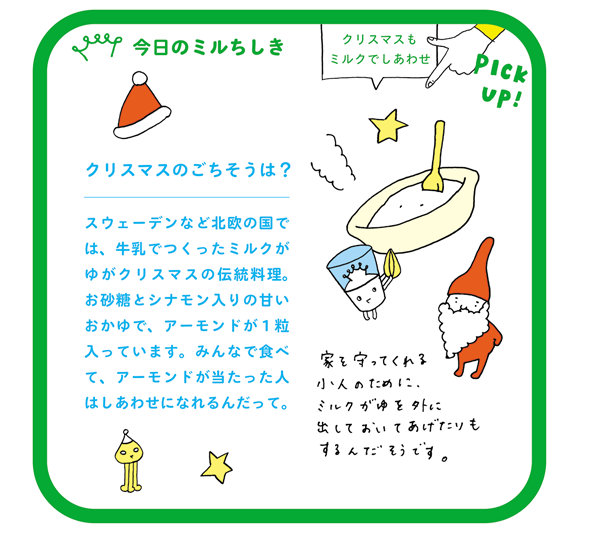 今日のミルちしき
クリスマスも
ミルクでしあわせ
PICK
UP!
クリスマスのごちそうは？
スウェーデンなど北欧の国で
は、牛乳でつくったミルクが
ゆがクリスマスの伝統料理。
お砂糖とシナモン入りの甘い
おかゆで、アーモンドが１粒
入っています。みんなで食べ
て、アーモンドが当たった人
はしあわせになれるんだって。
家を守ってくれる
小人のために、
ミルクがゆを外に
出しておいてあげたりも
するんだそうです。